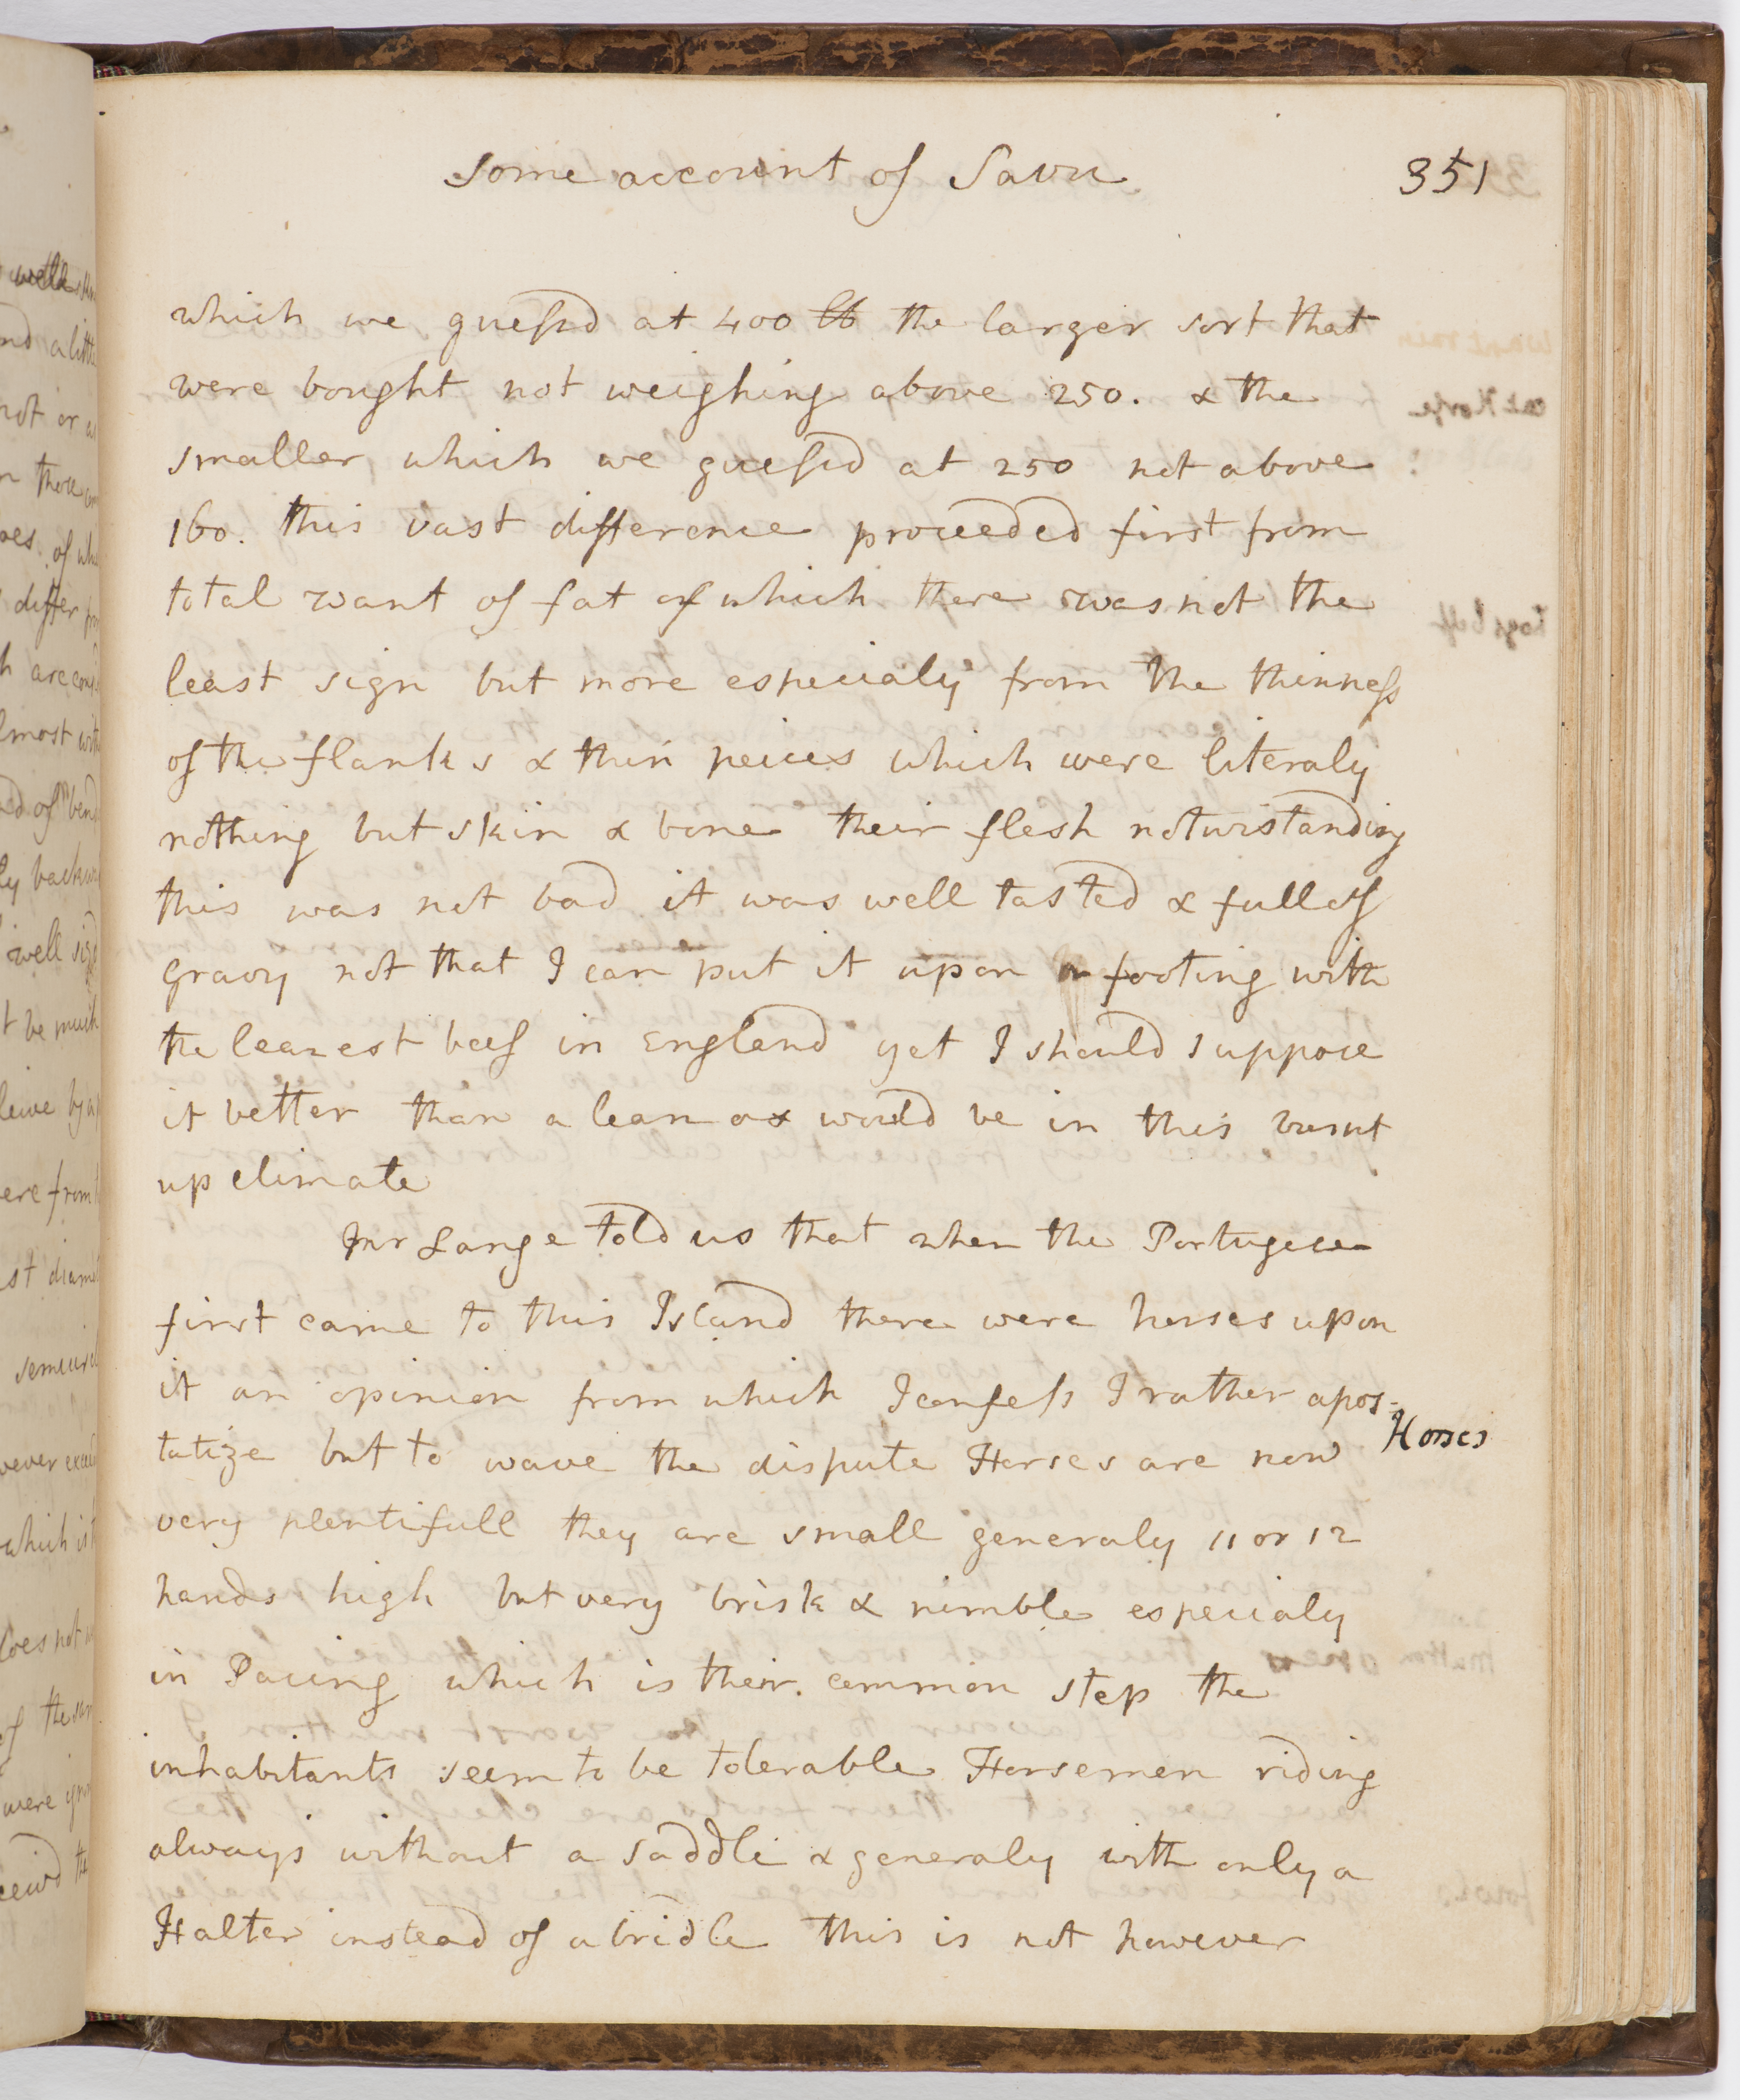 Some account of Savu
351
which we guessd at 400 lb the larger sort that
were bought not weighing above 250. & the
smaller, which we guessd at 250 not above
160. this vast difference proceeded first from
total want of fat of which there was not the
least sign but more especialy from the thinness
of the flanks & thin peices which were literaly
nothing but skin & bone their flesh notwistanding
this was not bad it was well tasted & full of
gravy not that I can put it upon a footing with
the leanest beef in England yet I should suppose
it better than a lean ox would be in this burnt
up climate
Mr Lange told us that when the Portugese
first came to this Island there were horses upon
it an opinion from which I confess I rather apos-
Horses
tatize but to wave the dispute Horses are now
very plentifull they are small generaly 11 or 12
hands high but very brisk & nimble especialy
in Pacing which is their common step the
inhabitants seem to be tolerable Horsemen riding
always without a saddle & generaly with only a
Halter instead of a bridle this is not however